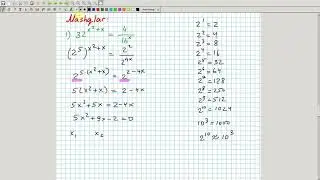 Mashqlar:
1) 32^(x²+x) = 4/16^x
(2^5)^(x²+x) = 2²/2^(4x)
2^(5·(x²+x)) = 2^(2-4x)
5(x²+x) = 2-4x
5x²+5x = 2-4x
5x²+9x-2=0
x₁ x₂
2^1 = 2
2^2 = 4
2^3 = 8
2^4 = 16
2^5 = 32
2^6 = 64
2^7 = 128
2^8 = 256
2^9 = 512
2^10 = 1024
10^3 = 1000
2^10 ≈ 10^3